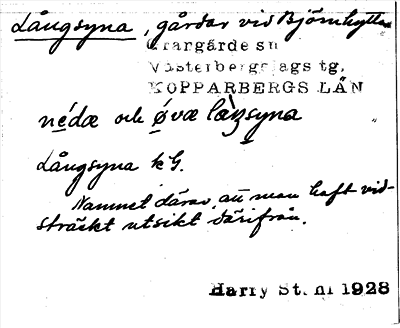 Långsyna, gårdar vid Björnhyttan
Grangärde sn
Västerbergslags tg.
KOPPARBERGS LÄN
nedæ och øvæ là̀ŋsyna
Långsyna kG.
Namnet därav, att man haft vid-
sträckt utsikt därifrån.
Harry Ståhl 1928